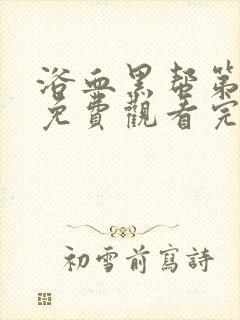 浴血黑帮第
免費觀看完
初雪前寫詩